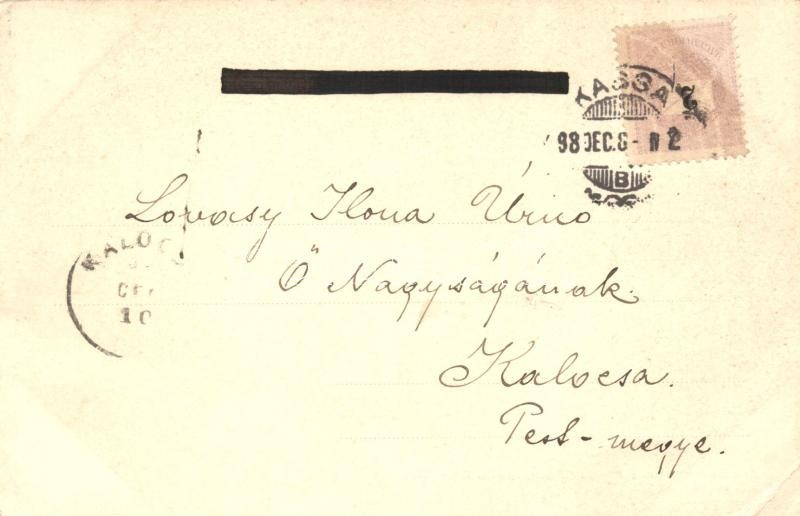 KASSA
98 DEC. 8 - N 2
B
Lovasy Ilona Úrnő
Ő Nagyságának.
KALOC
10
Kalocsa.
Pest-megye.